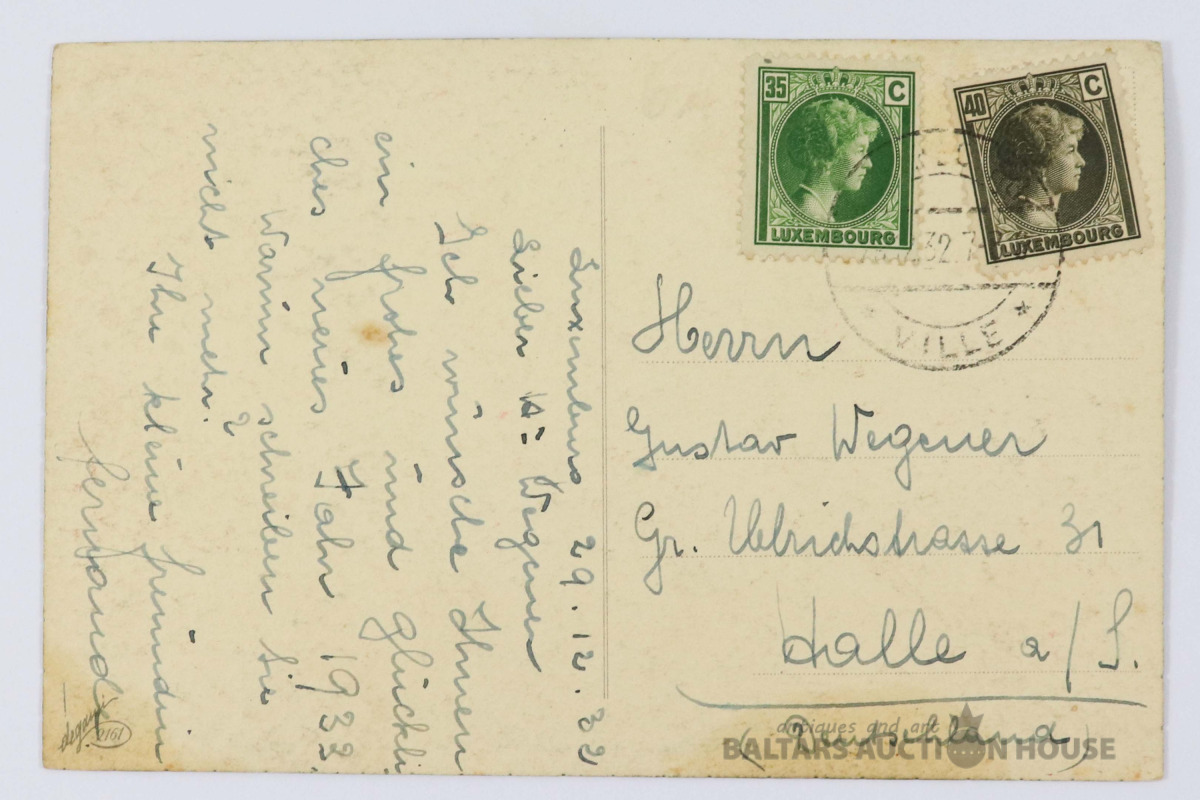 Luxemburg 29.12.32
Lieber H: Wegener
Ich wünsche Ihnen
ein frohes und glückli
ches neues Jahr 1933.
Warum schreiben Sie
nicht mehr?
Ihre kleine freundin
35 C
LUXEMBOURG
40 C
LUXEMBOURG
32.7
* VILLE *
Herrn
Gustav Wegener
Gr. Ulrichstrasse 31
Halle a/S.
(Deutschland)
2161
antiques and art
BALTARS AUCTION HOUSE